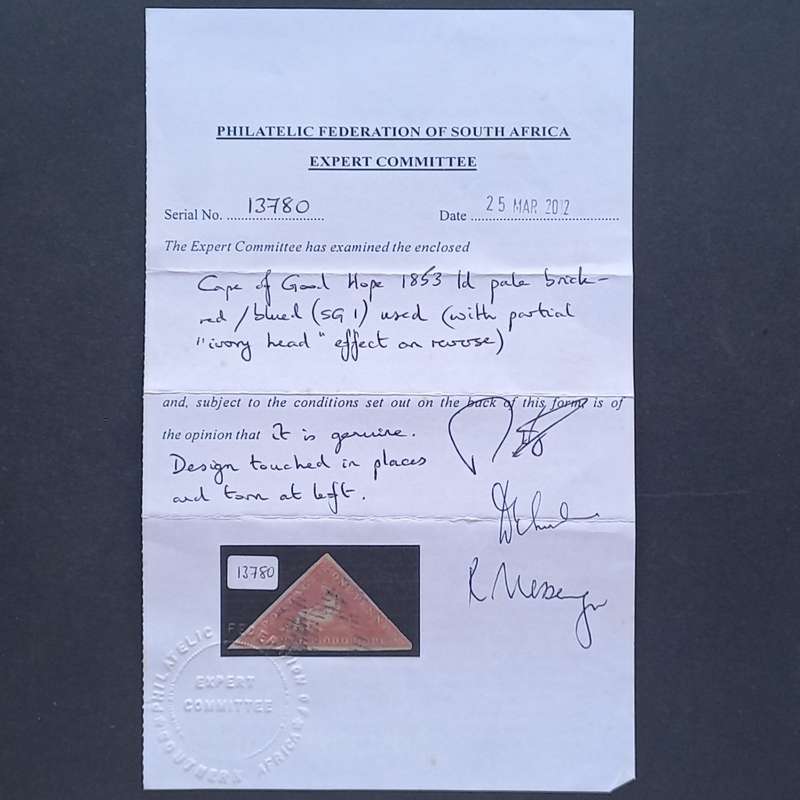 PHILATELIC FEDERATION OF SOUTH AFRICA
EXPERT COMMITTEE
Serial No. 13780
Date 25 MAR 2012
The Expert Committee has examined the enclosed
Cape of Good Hope 1853 1d pale brick-
red / blued (SG 1) used (with partial
"ivory head" effect on reverse)
and, subject to the conditions set out on the back of this form, is of
the opinion that it is genuine.
Design touched in places
and torn at left.
R Messenger
13780
POSTAGE
ONE PENNY
GOOD HOPE
PHILATELIC FEDERATION OF SOUTHERN AFRICA
EXPERT
COMMITTEE